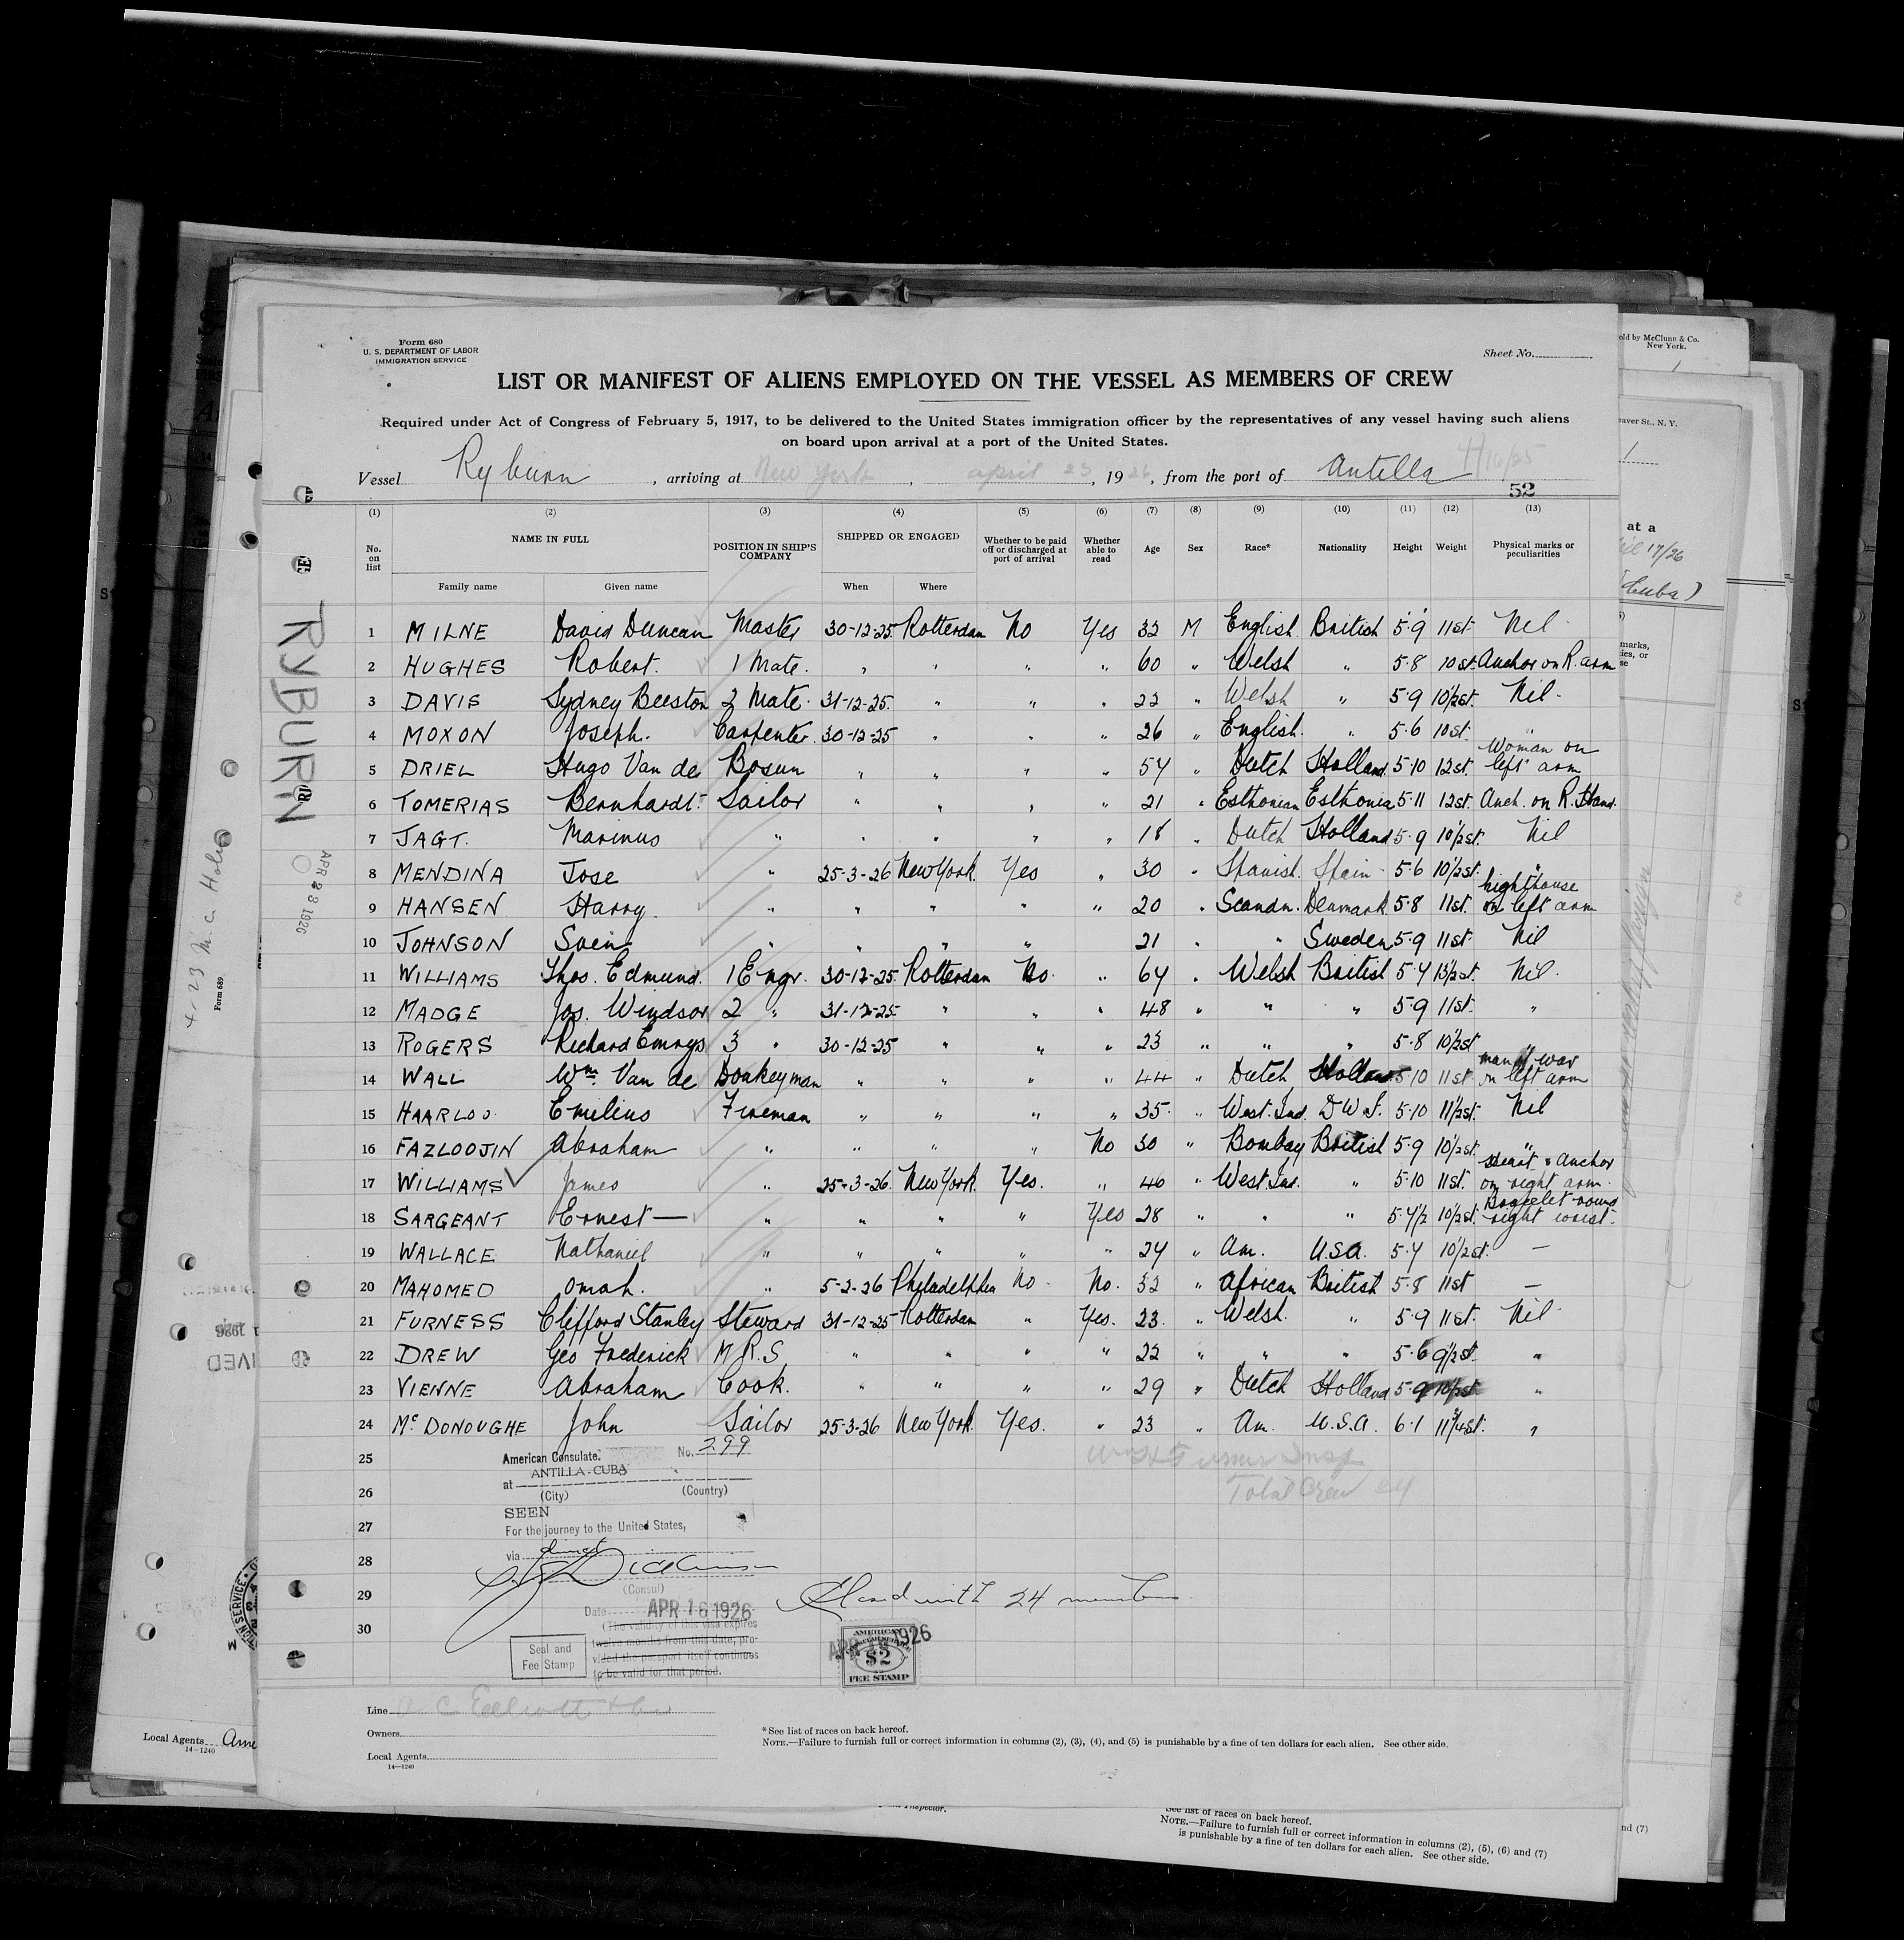 Form 680
U. S. DEPARTMENT OF LABOR
IMMIGRATION SERVICE
Sheet No.
LIST OR MANIFEST OF ALIENS EMPLOYED ON THE VESSEL AS MEMBERS OF CREW
Required under Act of Congress of February 5, 1917, to be delivered to the United States immigration officer by the representatives of any vessel having such aliens
on board upon arrival at a port of the United States.
Vessel Ryburn, arriving at New York, april 23, 1926, from the port of Antilla 4/16/25
52
(1) (2) (3) (4) (5) (6) (7) (8) (9) (10) (11) (12) (13)
No. on list NAME IN FULL POSITION IN SHIP'S COMPANY SHIPPED OR ENGAGED Whether to be paid off or discharged at port of arrival Whether able to read Age Sex Race* Nationality Height Weight Physical marks or peculiarities
Family name Given name When Where
1 MILNE David Duncan Master 30-12-25 Rotterdam No Yes 32 M English British 5'9" 11st. Nil
2 HUGHES Robert. 1 Mate. " " " " 60 " Welsh " 5·8 10st. Anchor on R. arm
3 DAVIS Sydney Beeston 2 Mate. 31-12-25. " " " 22 " Welsh " 5·9 10½st. Nil-
4 MOXON Joseph. Carpenter. 30-12-25 " " " 26 " English. " 5·6 10st. "
5 DRIEL Hugo Van de Bosun " " " " 54 " Dutch Holland 5·10 12st. Woman on left arm
6 TOMERIAS Bernhardt- Sailor " " " " 21 " Esthonian Esthonia 5·11 12st. Anch. on R. Hand.
7 JAGT. Marinus " " " " " 18 " Dutch Holland 5·9 10½st. Nil
8 MENDINA Jose " 25-3-26 New York. Yes " 30 " Spanish. Spain 5·6 10½st. "
9 HANSEN Harry. " " " " " 20 " Scandn. Denmark 5·8 11st. Lighthouse on left arm
10 JOHNSON Svein " " " " 21 " " Sweden 5·9 11st. Nil
11 WILLIAMS Thos. Edmund. 1 Engr. 30-12-25 Rotterdam No. " 64 " Welsh British 5·4 13½st. Nil.
12 MADGE Jos. Windsor 2 " 31-12-25 " " " 48 " " " 5·9 11st. "
13 ROGERS Richard Emrys 3 " 30-12-25 " " " 23 " " " 5·8 10½st "
14 WALL Wm. Van de Donkeyman " " " " 44 " Dutch Holland 5·10 11st. man of war on left arm
15 HAARLOO. Emelius Fireman " " " " 35. " West. Ind. D W I. 5·10 11½st. Nil
16 FAZLOOJIN Abraham " " " " No 30 " Bombay British 5·9 10½st. "
17 WILLIAMS James " 25-3-26. New York. Yes. " 40 " West. Ind. " 5·10 11st. Heart & Anchor on right arm.
18 SARGEANT Ernest — " " " " Yes 28 " " " 5·4½ 10½st. Bracelet round right wrist.
19 WALLACE Nathaniel " " " " " 24 " Am. U.S.A. 5·4 10½st. —
20 MAHOMED Omah. " 5-2-26 Philadelphia No - No. 32 " African British 5·8 11st —
21 FURNESS Clifford Stanley Steward 31-12-25 Rotterdam " Yes. 23. " Welsh. " 5·9 11st. Nil-
22 DREW Geo Frederick M.R.S. " " " " 22 " " " 5·6 9½st. "
23 VIENNE Abraham Cook. " " " " 29 " Dutch Holland 5·9 10½st. "
24 Mc DONOUGHE John Sailor 25-3-26 New York. Yes. " 23 " Am. U.S.A. 6·1 11¾st. "
25
26
27
28
29
30
American Consulate. No. 299
at ANTILLA-CUBA
(City) (Country)
SEEN
For the journey to the United States,
via direct
(Consul)
Date APR 16 1926
(The validity of this visa expires
twelve months from this date, pro-
vided the passport itself continues
to be valid for that period.
Seal and
Fee Stamp
Total Crew 24
Closed with 24 members
AMERICAN
$2
FEE STAMP
Line
Owners
Local Agents
14—1240
*See list of races on back hereof.
NOTE.—Failure to furnish full or correct information in columns (2), (3), (4), and (5) is punishable by a fine of ten dollars for each alien. See other side.
RYBURN
APR 23 1926
Form 689
Local Agents
14-1240
old by McClunn & Co.
New York.
eaver St., N. Y.
at a
17/26
(Cuba)
See list of races on back hereof.
NOTE.—Failure to furnish full or correct information in columns (2), (5), (6) and (7)
is punishable by a fine of ten dollars for each alien. See other side.
nd (7)